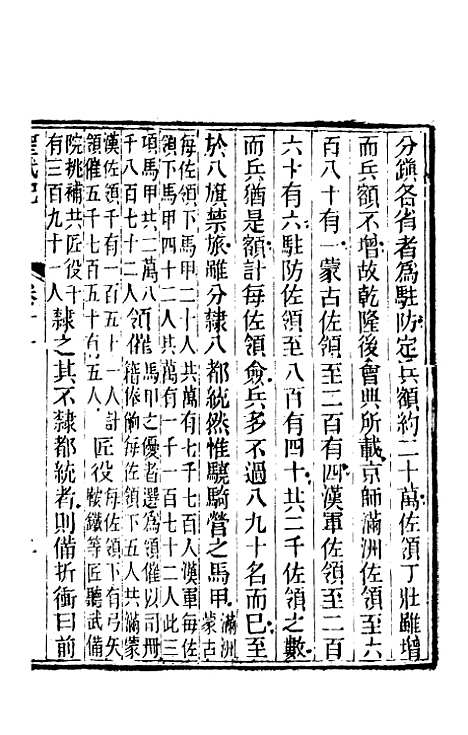 分鎮各省者爲駐防定兵額約二十萬佐領丁壯雖增
而兵額不增故乾隆後會典所載京師滿洲佐領至六
百八十有一蒙古佐領至二百有四漢軍佐領至二百
六十有六駐防佐領至八百有四十共二千佐領之數
而兵猶是額計每佐領僉兵多不過八九十名而已至
於八旗禁旅雖分隸八都統然惟驍騎營之馬甲
滿洲
蒙古
每佐領下馬甲二十人共萬有七千七百人漢軍每佐
領下馬甲四十二人共萬有一千一百七十二人此三
項馬甲共二萬八
千八百七十二人
領催
馬甲之優者選爲領催以司冊
籍俸餉每佐領下五人共滿蒙
漢佐領千有一百五十一人計
領催五千七百五十有五人
匠役
每佐領下有弓矢
鞍鐵等匠聽武備
院挑補共匠役千
有三百九十一人
隸之其不隸都統者則備折衝曰前
聖武記
卷十一